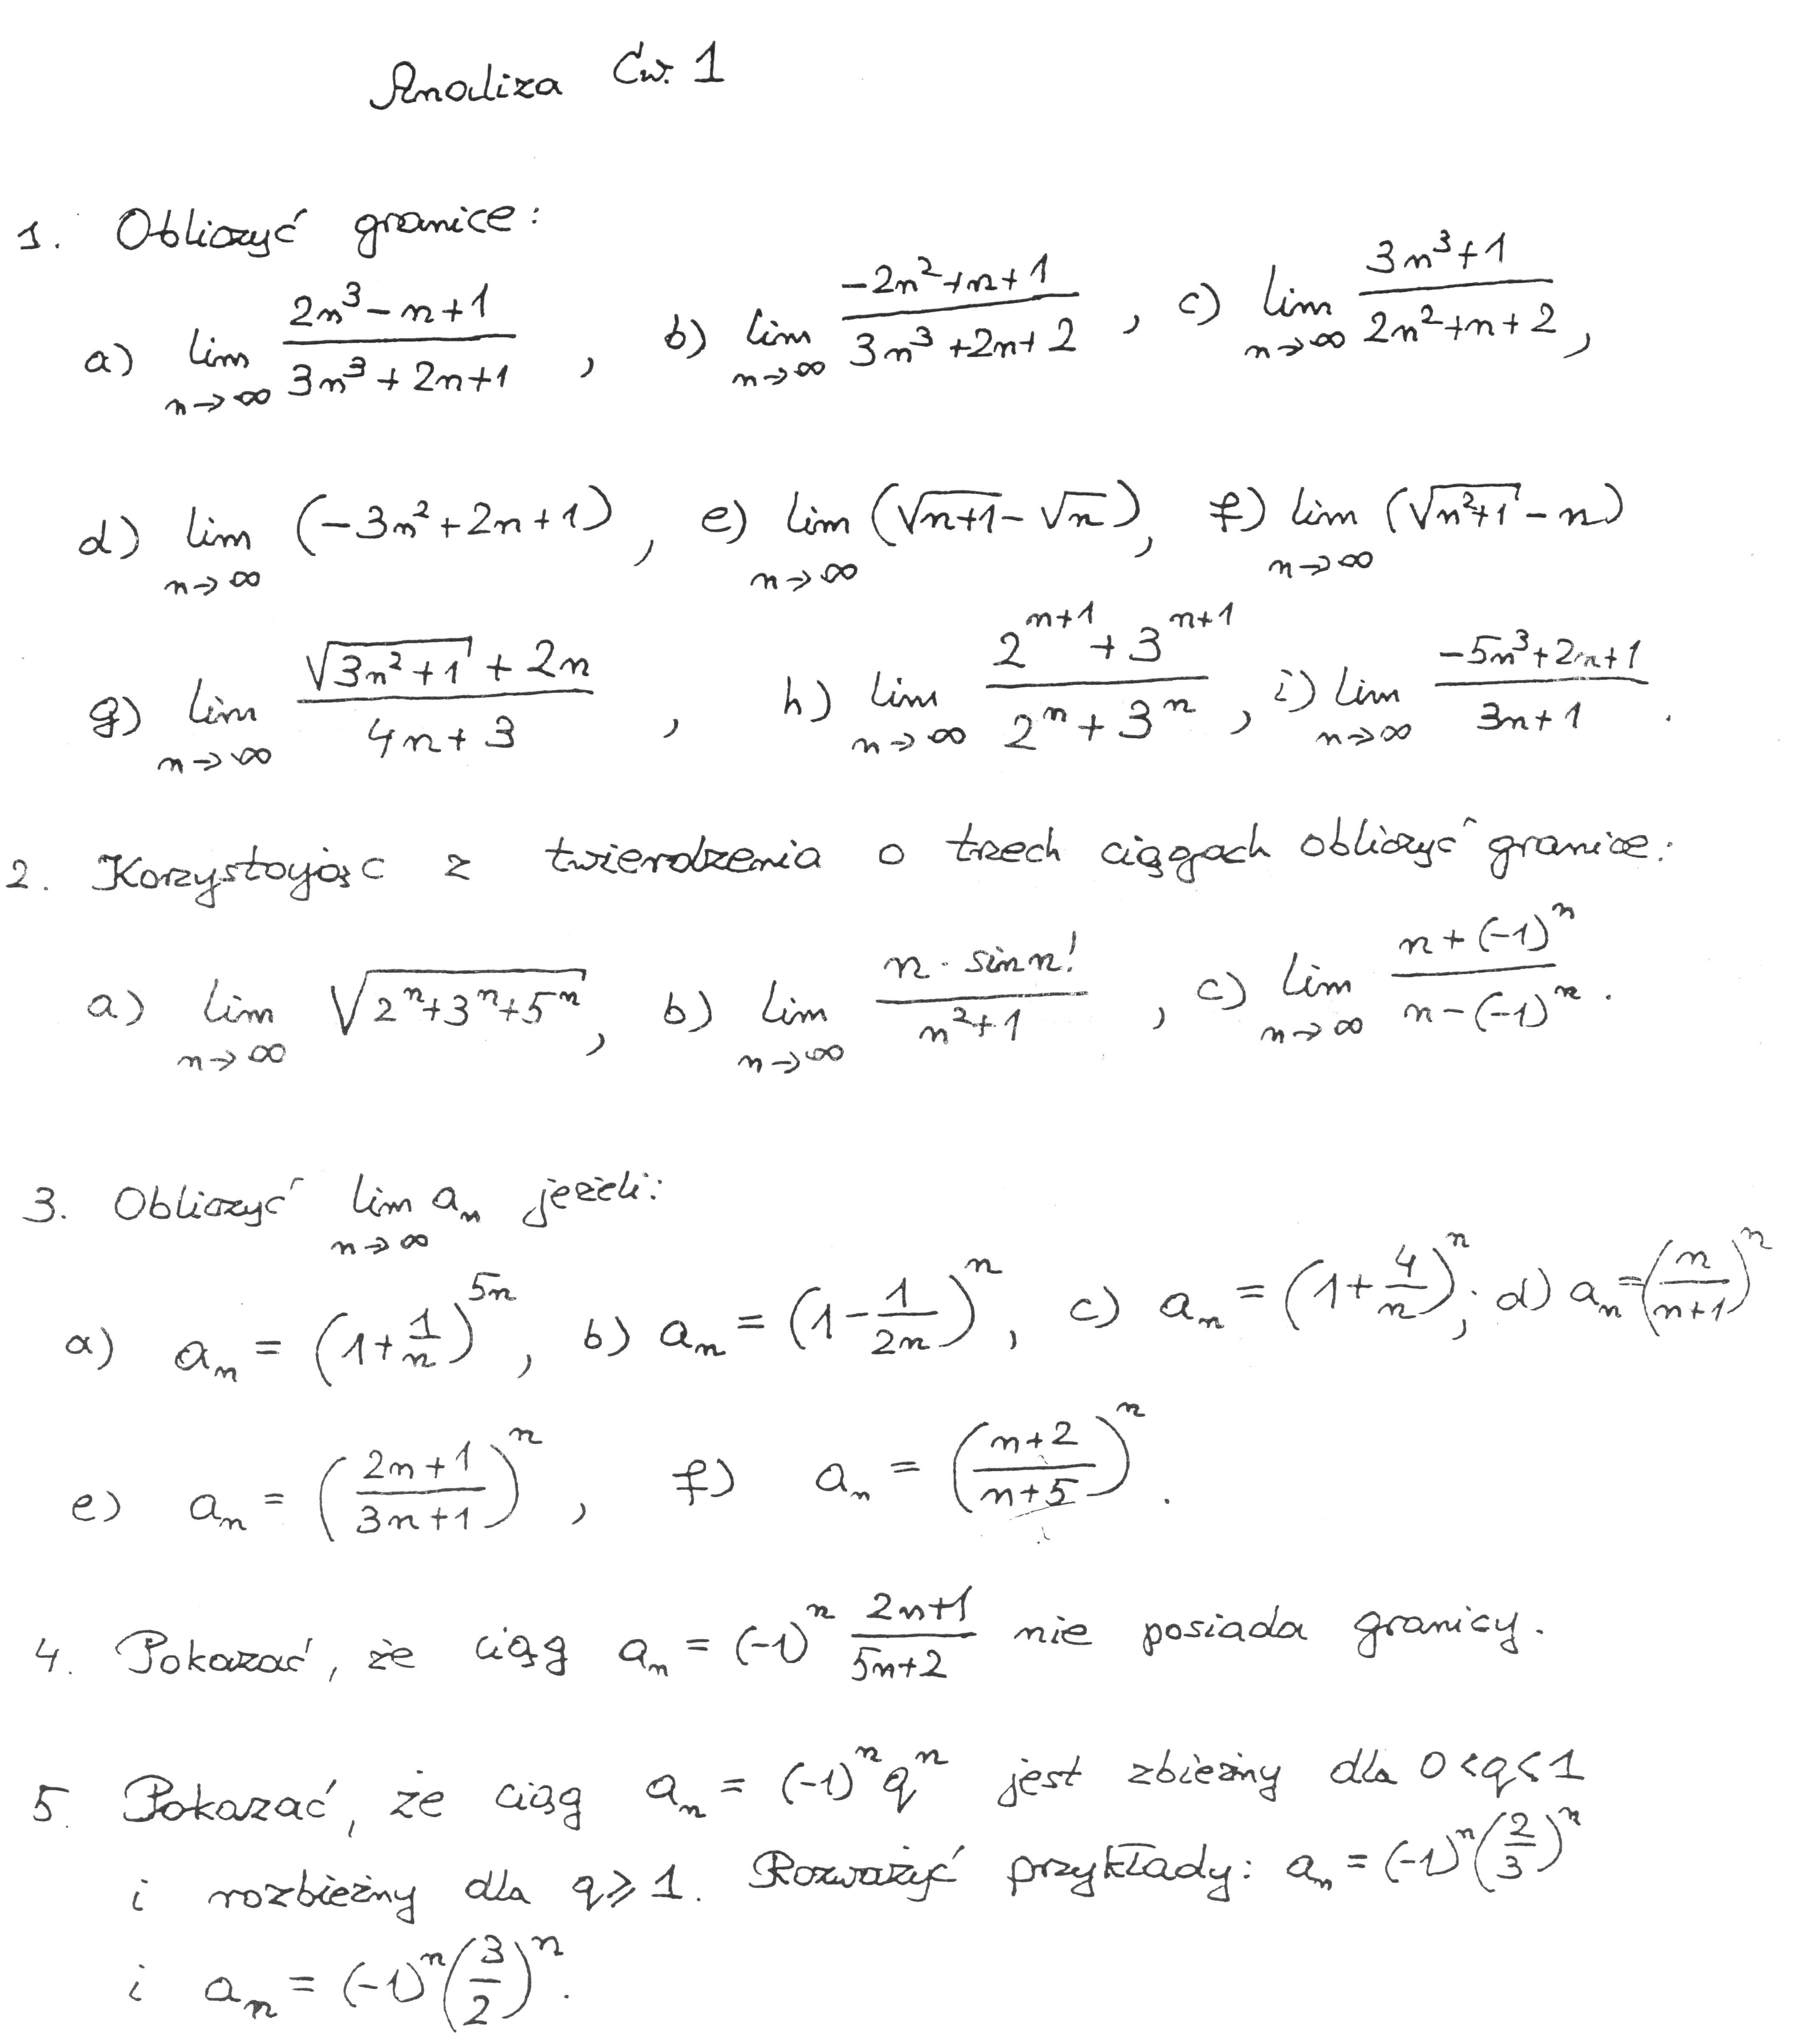 Analiza Ćw. 1
1. Obliczyć granice:
a) lim_{n→∞} \frac{2n^3-n+1}{3n^3+2n+1}, b) lim_{n→∞} \frac{-2n^2+n+1}{3n^3+2n+2}, c) lim_{n→∞} \frac{3n^3+1}{2n^2+n+2},
d) lim_{n→∞} (-3n^2+2n+1), e) lim_{n→∞} (\sqrt{n+1}-\sqrt{n}), f) lim_{n→∞} (\sqrt{n^2+1}-n)
g) lim_{n→∞} \frac{\sqrt{3n^2+1}+2n}{4n+3}, h) lim_{n→∞} \frac{2^{n+1}+3^{n+1}}{2^n+3^n}, i) lim_{n→∞} \frac{-5n^3+2n+1}{3n+1}.
2. Korzystając z twierdzenia o trzech ciągach obliczyć granice:
a) lim_{n→∞} \sqrt{2^n+3^n+5^n}, b) lim_{n→∞} \frac{n·sin n!}{n^2+1}, c) lim_{n→∞} \frac{n+(-1)^n}{n-(-1)^n}.
3. Obliczyć lim_{n→∞} a_n jeżeli:
a) a_n = (1+\frac{1}{n})^{5n}, b) a_n = (1-\frac{1}{2n})^n, c) a_n = (1+\frac{4}{n})^n; d) a_n = (\frac{n}{n+1})^n
e) a_n = (\frac{2n+1}{3n+1})^n, f) a_n = (\frac{n+2}{n+5})^n.
4. Pokazać, że ciąg a_n = (-1)^n \frac{2n+1}{5n+2} nie posiada granicy.
5. Pokazać, że ciąg a_n = (-1)^n q^n jest zbieżny dla 0<q<1
i rozbieżny dla q⩾1. Rozważyć przykłady: a_n = (-1)^n (\frac{2}{3})^n
i a_n = (-1)^n (\frac{3}{2})^n.